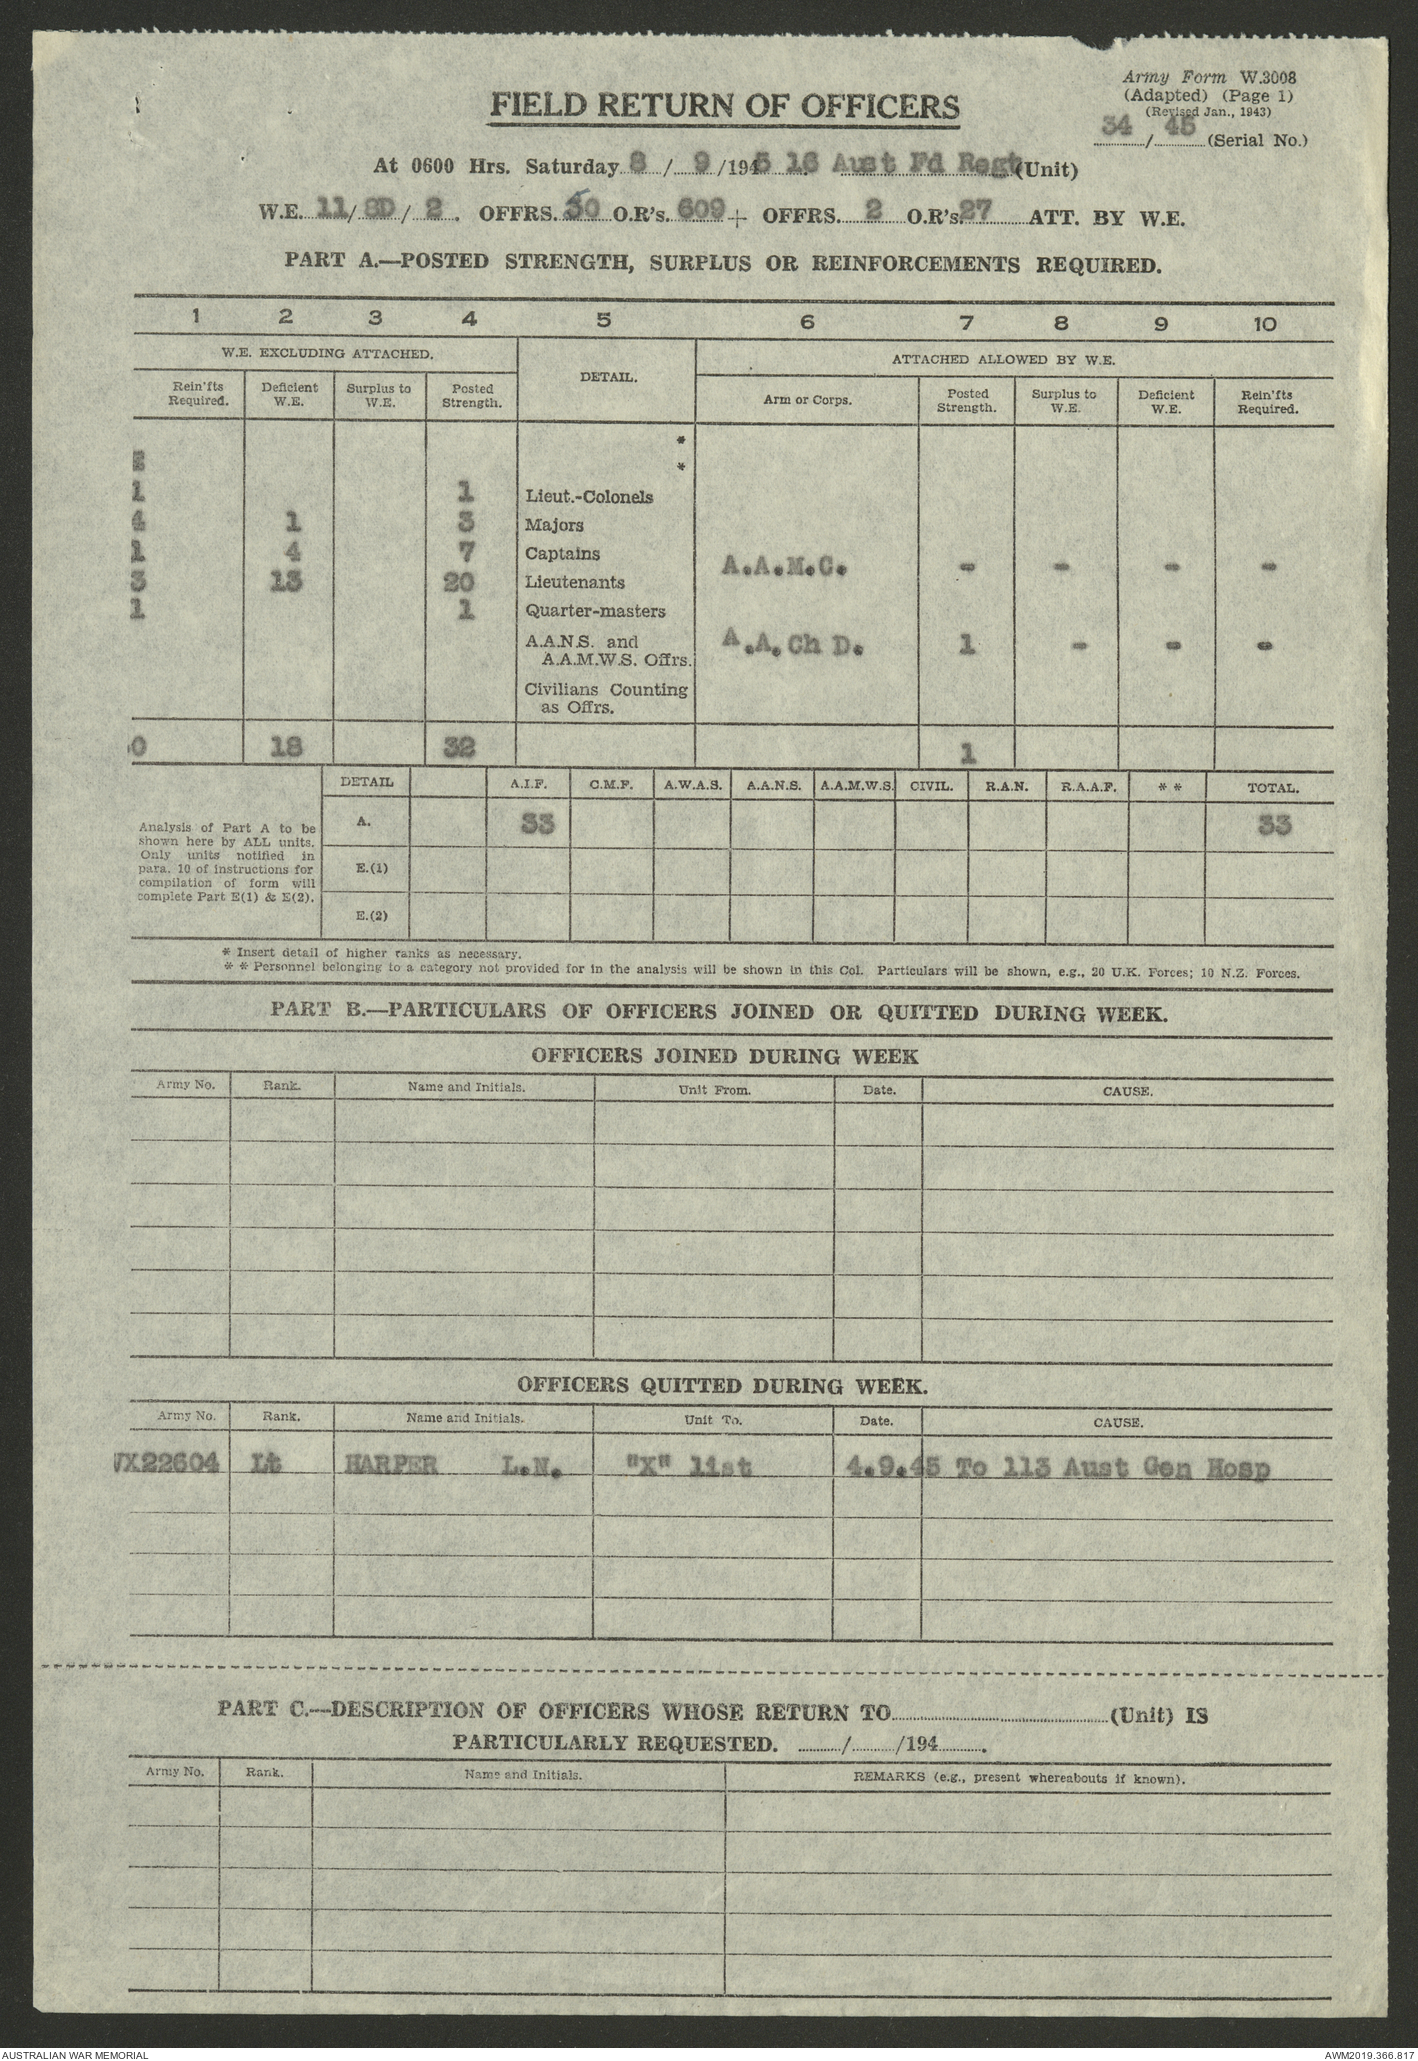 Army Form W.3008
(Adapted) (Page 1)
(Revised Jan., 1943)
34 / 45 (Serial No.)
FIELD RETURN OF OFFICERS
At 0600 Hrs. Saturday 8 / 9 /1945 16 Aust Fd Regt (Unit)
W.E. 11/ 8D / 2 . OFFRS. 50 O.R's. 609 + OFFRS. 2 O.R's. 27 ATT. BY W.E.
PART A.—POSTED STRENGTH, SURPLUS OR REINFORCEMENTS REQUIRED.
1 2 3 4 5 6 7 8 9 10
W.E. EXCLUDING ATTACHED. DETAIL. ATTACHED ALLOWED BY W.E.
Rein'fts Required. Deficient W.E. Surplus to W.E. Posted Strength. Arm or Corps. Posted Strength. Surplus to W.E. Deficient W.E. Rein'fts Required.
*
*
1 1 Lieut.-Colonels
4 1 3 Majors
1 4 7 Captains
A.A.M.C. - - - -
3 13 20 Lieutenants
1 1 Quarter-masters
A.A.N.S. and
A.A.M.W.S. Offrs. A.A.Ch D. 1 - - -
Civilians Counting
as Offrs.
0 18 32 1
DETAIL A.I.F. C.M.F. A.W.A.S. A.A.N.S. A.A.M.W.S. CIVIL. R.A.N. R.A.A.F. * * TOTAL.
A. 33 33
Analysis of Part A to be
shown here by ALL units.
Only units notified in
para. 10 of instructions for
compilation of form will
complete Part E(1) & E(2).
E.(1)
E.(2)
* Insert detail of higher ranks as necessary.
* * Personnel belonging to a category not provided for in the analysis will be shown in this Col. Particulars will be shown, e.g., 20 U.K. Forces; 10 N.Z. Forces.
PART B.—PARTICULARS OF OFFICERS JOINED OR QUITTED DURING WEEK.
OFFICERS JOINED DURING WEEK
Army No. Rank. Name and Initials. Unit From. Date. CAUSE.
OFFICERS QUITTED DURING WEEK.
Army No. Rank. Name and Initials. Unit To. Date. CAUSE.
VX22604 Lt HARPER L.N. "X" list 4.9.45 To 113 Aust Gen Hosp
PART C.—DESCRIPTION OF OFFICERS WHOSE RETURN TO (Unit) IS
PARTICULARLY REQUESTED. / /194 .
Army No. Rank. Name and Initials. REMARKS (e.g., present whereabouts if known).
AUSTRALIAN WAR MEMORIAL AWM2019.366.817